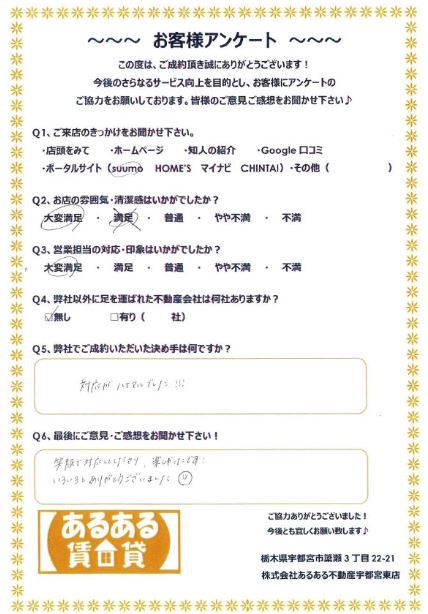 ~~~ お客様アンケート ~~~
この度は、ご成約頂き誠にありがとうございます！
今後のさらなるサービス向上を目的とし、お客様にアンケートの
ご協力をお願いしております。皆様のご意見ご感想をお聞かせ下さい♪
Q1、ご来店のきっかけをお聞かせ下さい。
・店頭をみて ・ホームページ ・知人の紹介 ・Google 口コミ
・ポータルサイト（suumo HOME'S マイナビ CHINTAI）・その他（ ）
Q2、お店の雰囲気・清潔感はいかがでしたか？
大変満足 ・ 満足 ・ 普通 ・ やや不満 ・ 不満
Q3、営業担当の対応・印象はいかがでしたか？
大変満足 ・ 満足 ・ 普通 ・ やや不満 ・ 不満
Q4、弊社以外に足を運ばれた不動産会社は何社ありますか？
☑無し □有り（ 社）
Q5、弊社でご成約いただいた決め手は何ですか？
対応が でした!!!
Q6、最後にご意見・ご感想をお聞かせ下さい！
笑顔で対応して 、楽しかったです！
いろいろとありがとうございました
ご協力ありがとうございました！
今後とも宜しくお願い致します♪
あるある
賃貸
栃木県宇都宮市簗瀬3丁目22-21
株式会社あるある不動産宇都宮東店